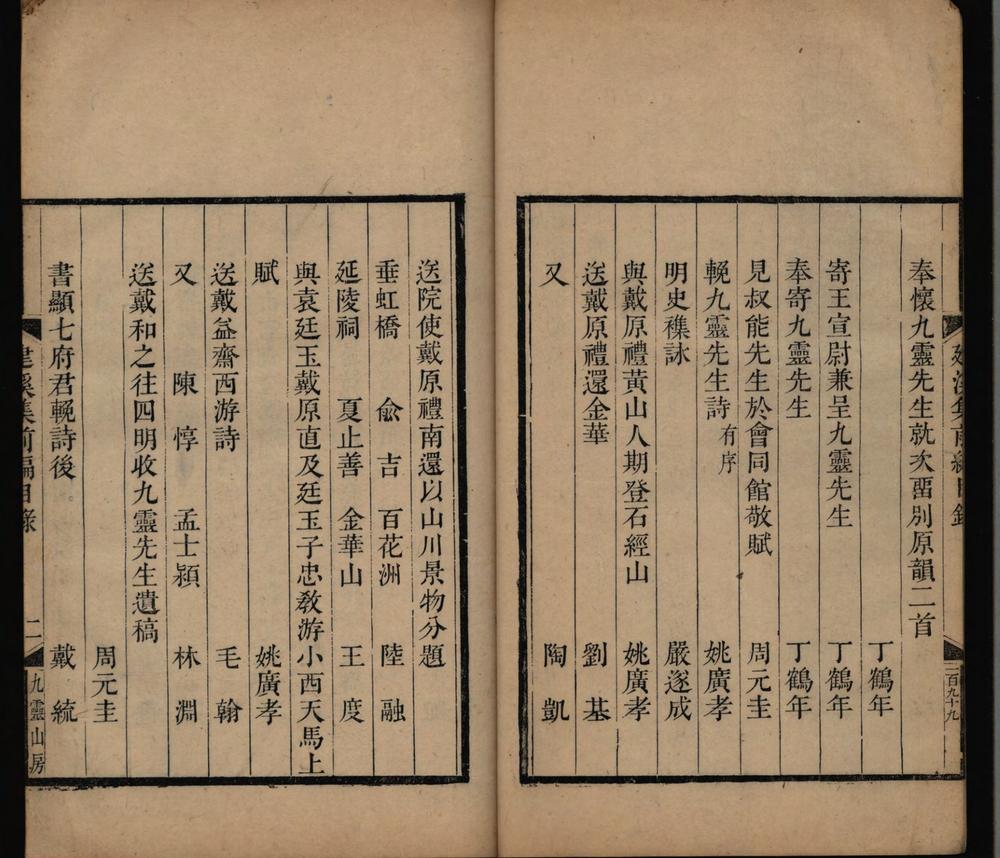 奉懷九靈先生就次畱別原韻二首
丁鶴年
寄王宣尉兼呈九靈先生 丁鶴年
奉寄九靈先生 丁鶴年
見叔能先生於會同館敬賦 周元圭
輓九靈先生詩有序 姚廣孝
明史襍詠 嚴遂成
與戴原禮黃山人期登石經山 姚廣孝
送戴原禮還金華 劉基
又 陶凱
送院使戴原禮南還以山川景物分題
垂虹橋 兪吉 百花洲 陸融
延陵祠 夏止善 金華山 王度
與袁廷玉戴原直及廷玉子忠敎游小西天馬上
賦 姚廣孝
送戴益齋西游詩 毛翰
又 陳惇 孟士潁 林淵
送戴和之往四明收九靈先生遺稿
周元圭
書顯七府君輓詩後 戴統
建溪集前編目錄 二 九靈山房
建溪集前編目錄 三百九十九